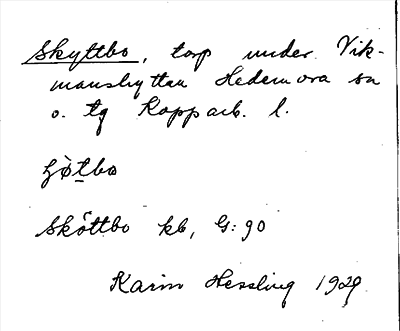 Skyttbo, torp under Vik-
manshyttan Hedemora sn
o. tg Kopparb. l.
Sköttbo kb, G:90
Karin Hessling 1929